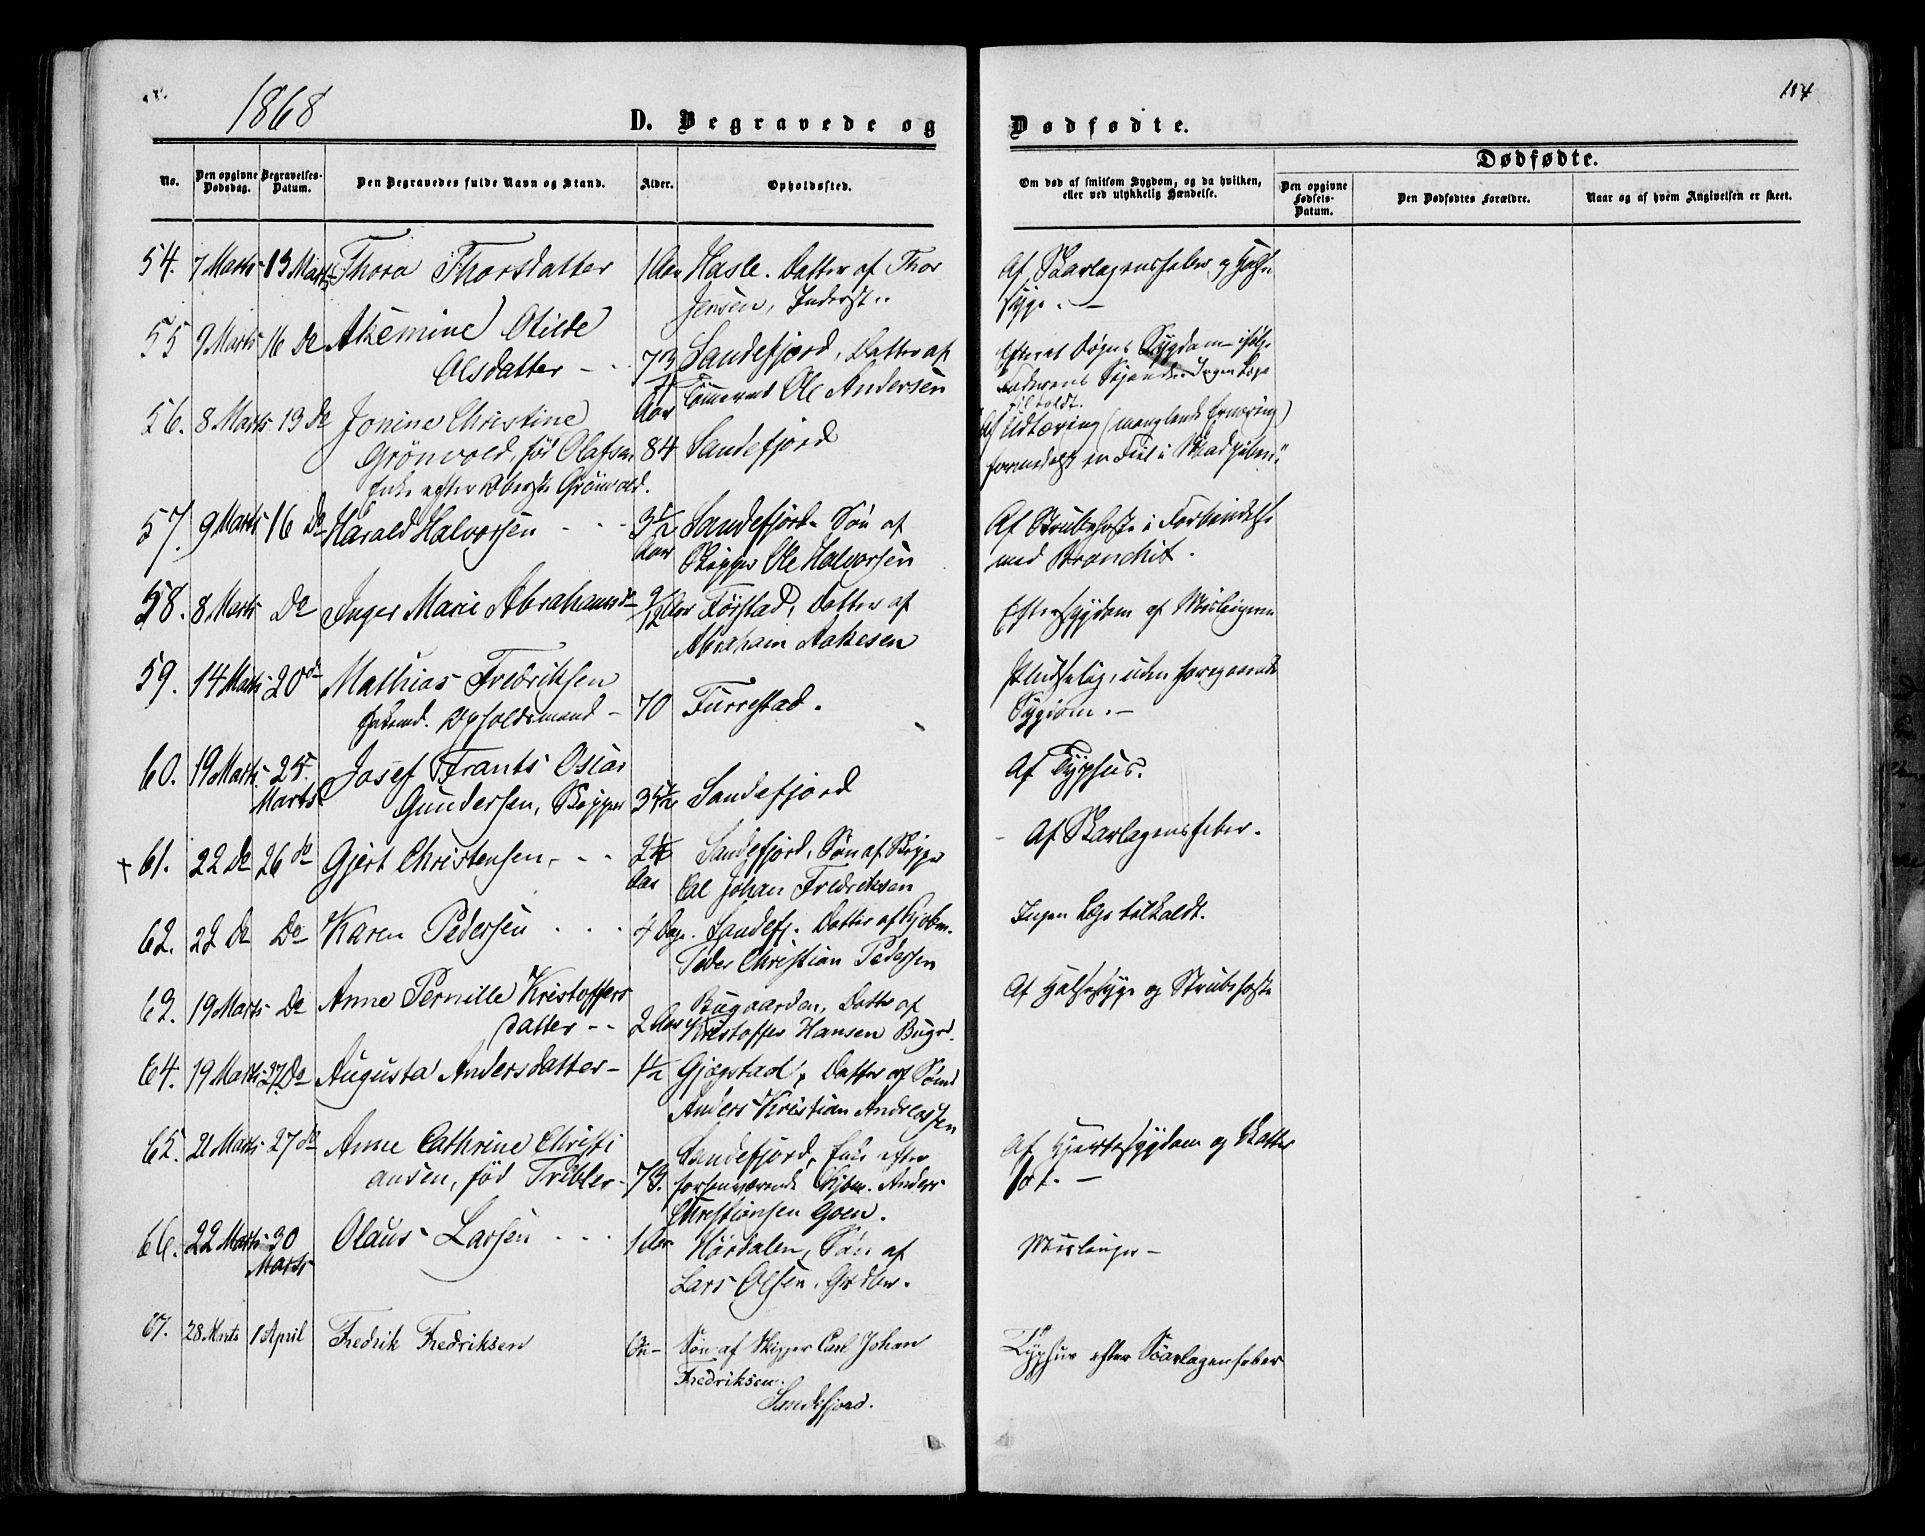 1868
114
D. Begravede og
Dødfødte.
No.
Den opgivne Dødsdag.
Begravelses-Datum.
Den Begravedes fulde Navn og Stand.
Alder.
Opholdssted.
Om død af smitsom Sygdom, og da hvilken, eller ved ulykkelig Hændelse.
Dødfødte.
Den opgivne Fødsels-Datum.
Den Dødfødtes Forældre.
Naar og af hvem Angivelsen er skeet.
54. 7 Marts 13 Marts Thora Thorsdatter 1 Aar Hasle. Datter af Thor
Jensen, Inderst.
Af Skarlagensfeber og Hals
syge.
55 9 Marts 16 Do
Olsdatter
Sandefjord, Datter af
Ole Andersen
Sygdom
Ingen Læge
tilkaldt.
56. 8 Marts 13 Do Jonine Christine
Grönvold, föd Olafsen 84 Sandefjord
Enke efter Oberst Grönvold.
Af Udtæring (manglende Ernæring)
formedelst en Feil i
57. 9 Marts 16 Do Harald Halvorsen 3½ Aar Sandefjord. Sön af
Skipper Ole Halvorsen
Af Strubehoste i Forbindelse
med Bronchit.
58. 8 Marts Do Inger Marie Abrahamsd 9/12 Aar Förstad, Datter af
Abraham Aakesen
Eftersygdom af Meslingerne
59. 14 Marts 20 do Mathias Fredriksen
70 Furrestad.
Pludselig, uden foregaaende
Sygdom.
60. 19 Marts 25 Marts Josef Frants Oscar
Gundersen, Skipper 35½ Sandefjord
Af Typhus.
+ 61. 22 Do 26 do Gjert Christensen, Aar Sandefjord, Sön af Skipper
Johan Fredriksen
Af Skarlagensfeber.
62. 22 Do Do Karen Pedersen 4 Dage. Sandefj. Datter af Kjöbm.
Peder Christian Pedersen
Ingen Læge tilkaldt.
63. 19 Marts Do Anne Pernille Kristoffers
datter 2 Aar Bugaarden, Datter af
Kristoffer Hansen Bugrd.
Af Halssyge og Strubehoste
64. 19 Marts 27. Do Augusta Andersdatter 1½ Gjögstad, Datter af Sömd
Anders Kristian Andreassen
65. 21 Marts 27 do Anne Cathrine Christi
ansen, föd Tribler 73. Sandefjord, Enke efter
forhenværende Kjöbm. Anders
Christiansen Goen.
Af Hjertesygdom og Vatter
sot.
66. 22 Marts 30 Marts Olaus Larsen 1 Aar Hördalen, Sön af
Lars Olsen, Grdbr.
Meslinger
67. 28 Marts 1 April Fredrik Fredriksen Sön af Skipper Carl Johan
Fredriksen.
Sandefjord.
Typhus efter Scarlagensfeber